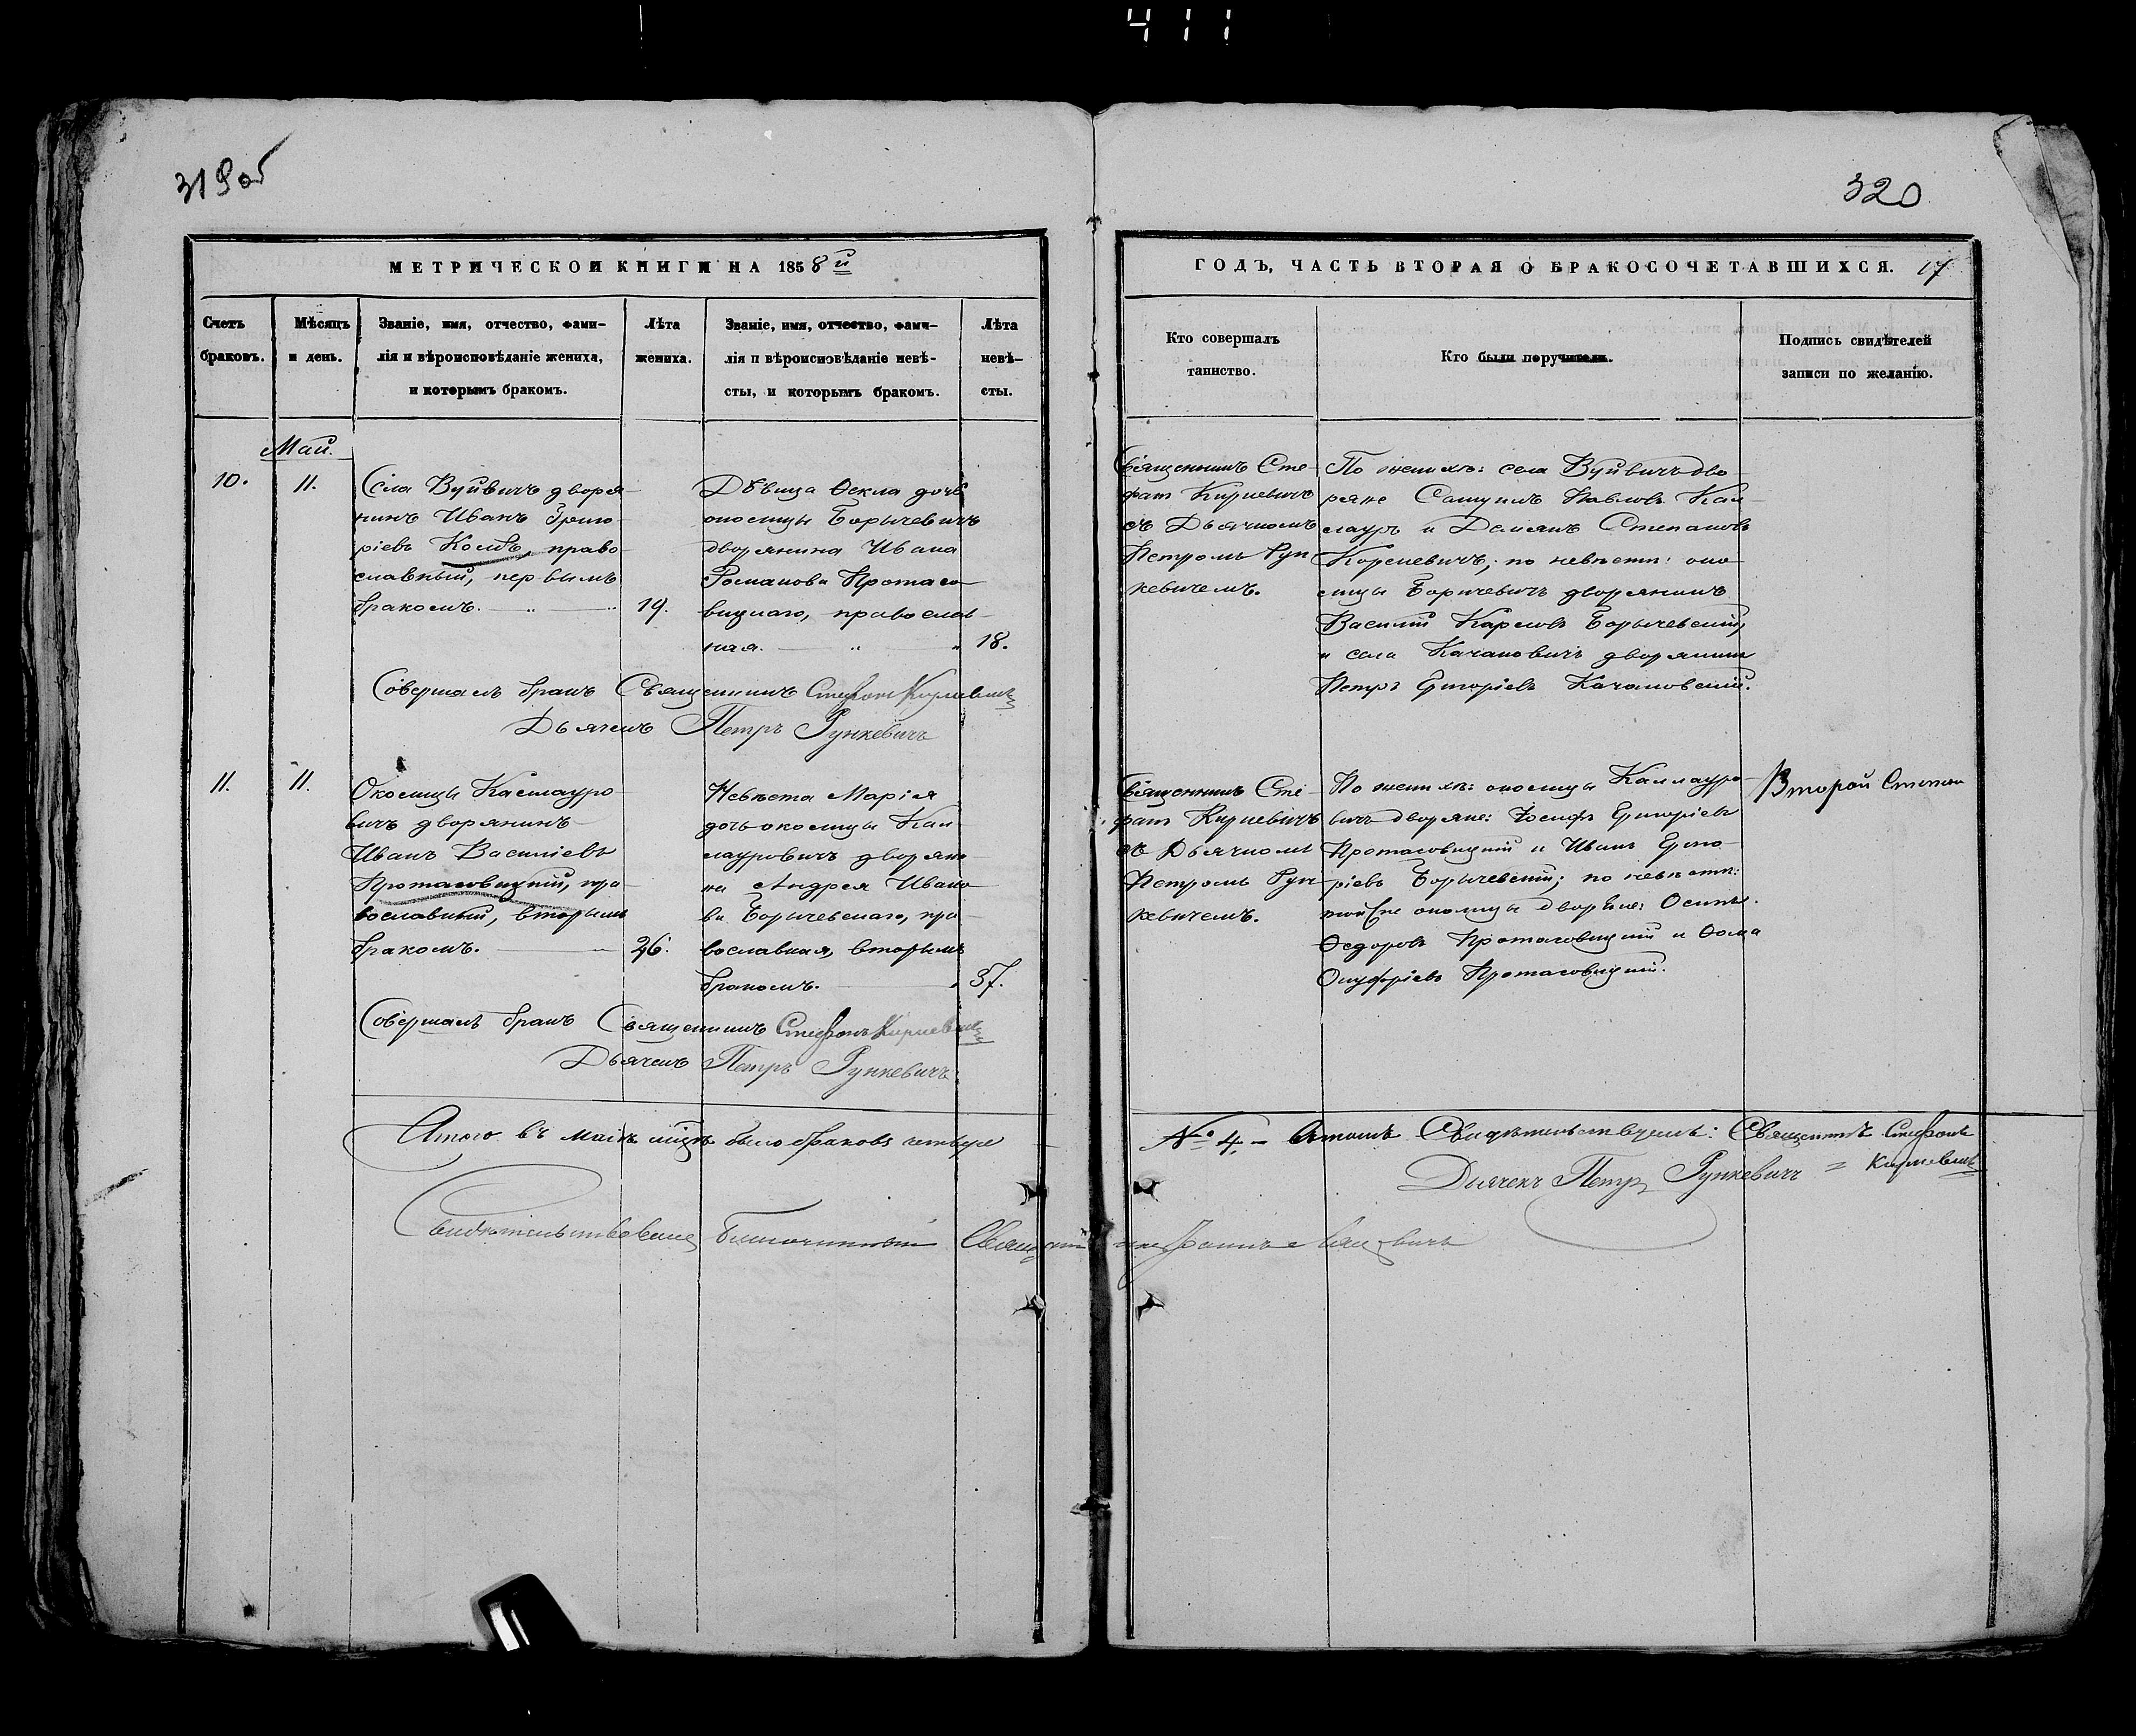 411
319 об
320
МЕТРИЧЕСКОЙ КНИГИ НА 1858й
ГОДЪ, ЧАСТЬ ВТОРАЯ О БРАКОСОЧЕТАВШИХСЯ. 17
Счетъ браковъ.
Мѣсяцъ и день.
Званіе, имя, отчество, фами-
лія и вѣроисповѣданіе жениха,
и которымъ бракомъ.
Лѣта жениха.
Званіе, имя, отчество, фами-
лія и вѣроисповѣданіе невѣ-
сты, и которымъ бракомъ.
Лѣта невѣ-
сты.
Кто совершалъ
таинство.
Кто были поручители.
Подпись свидѣтелей
записи по желанію.
Май.
10.
11.
Села Вуйвичъ дворя-
нинъ Иванъ Григо-
ріевъ право-
славный, первымъ
бракомъ.
19.
Дѣвица Ѳекла дочь
околицы Борычевичъ
дворянина Ивана
Романова Протасо-
вицкаго, православ-
ная.
18.
Священникъ Сте-
фан Кирневичъ
съ Дьячкомъ
Петромъ Рун-
кевичемъ.
По женихѣ: села Вуйвичъ дво-
ряне Павловъ Кал-
лауръ и Демянъ Степановъ
Корневичъ; по невѣстѣ: око-
лицы Боричевичъ дворянинъ
Василій Карповъ Борычевскій,
и села Качановичъ дворянин
Петръ Григоріевъ Качановскій.
Совершалъ бракъ Священникъ Стефанъ Кирневичъ
Дьячекъ Петръ Рункевичъ
11.
11.
Околицы Каллауро-
вичъ дворянинъ
Иванъ Василіевъ
Протасовицкій, пра-
вославный, вторымъ
бракомъ.
26.
Невѣста Марія
дочь околицы Кал-
лауровичъ дворяни-
на Андрея Ивано-
ва Борычевскаго, пра-
вославная, вторымъ
бракомъ.
37.
Священникъ Сте-
фан Кирневичъ
съ Дьячкомъ
Петромъ Рун-
кевичемъ.
По женихѣ: околицы Каллауро-
вичъ дворяне: Іосифъ Григоріевъ
Протасовицкій и Иванъ Григо-
ріевъ Борычевскій; по невѣстѣ:
той же околицы дворяне: Осипъ
Ѳедоровъ Протасовицкій и Ѳома
Онуфріевъ Протасовицкій.
Второй Степан
Совершалъ бракъ Священникъ Стефанъ Кирневичъ
Дьячекъ Петръ Рункевичъ
Итого въ маѣ мцѣ было браковъ четыре
№ 4. – въ томъ Свидѣтельствуемъ: Священникъ Стефанъ
Дьячекъ Петръ Рункевичъ = Кирневичъ
Свидѣтельствовалъ Благочинный